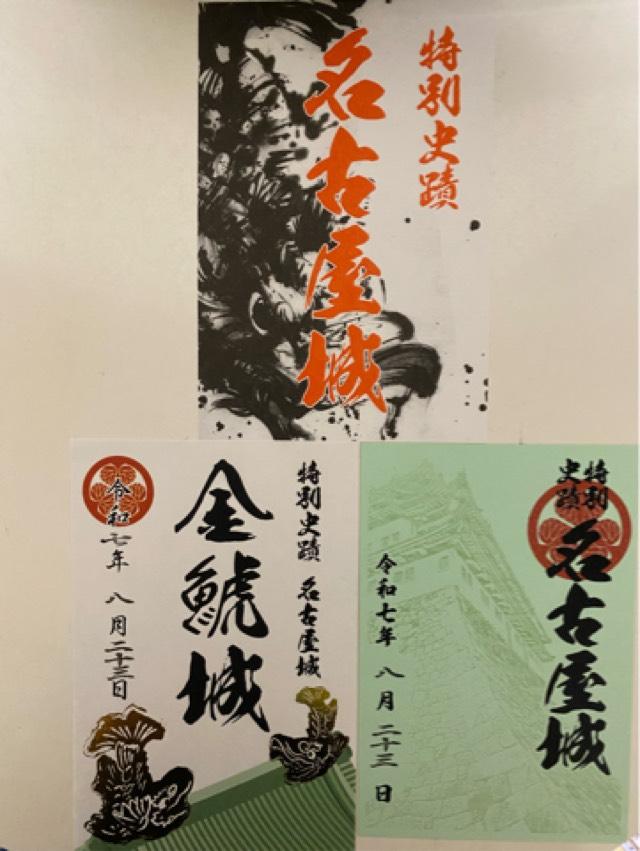 特別史蹟
名古屋城
特別史蹟 名古屋城
金鯱城
令和
七年 八月二十三日
特別
史蹟
名古屋城
令和七年 八月二十三日